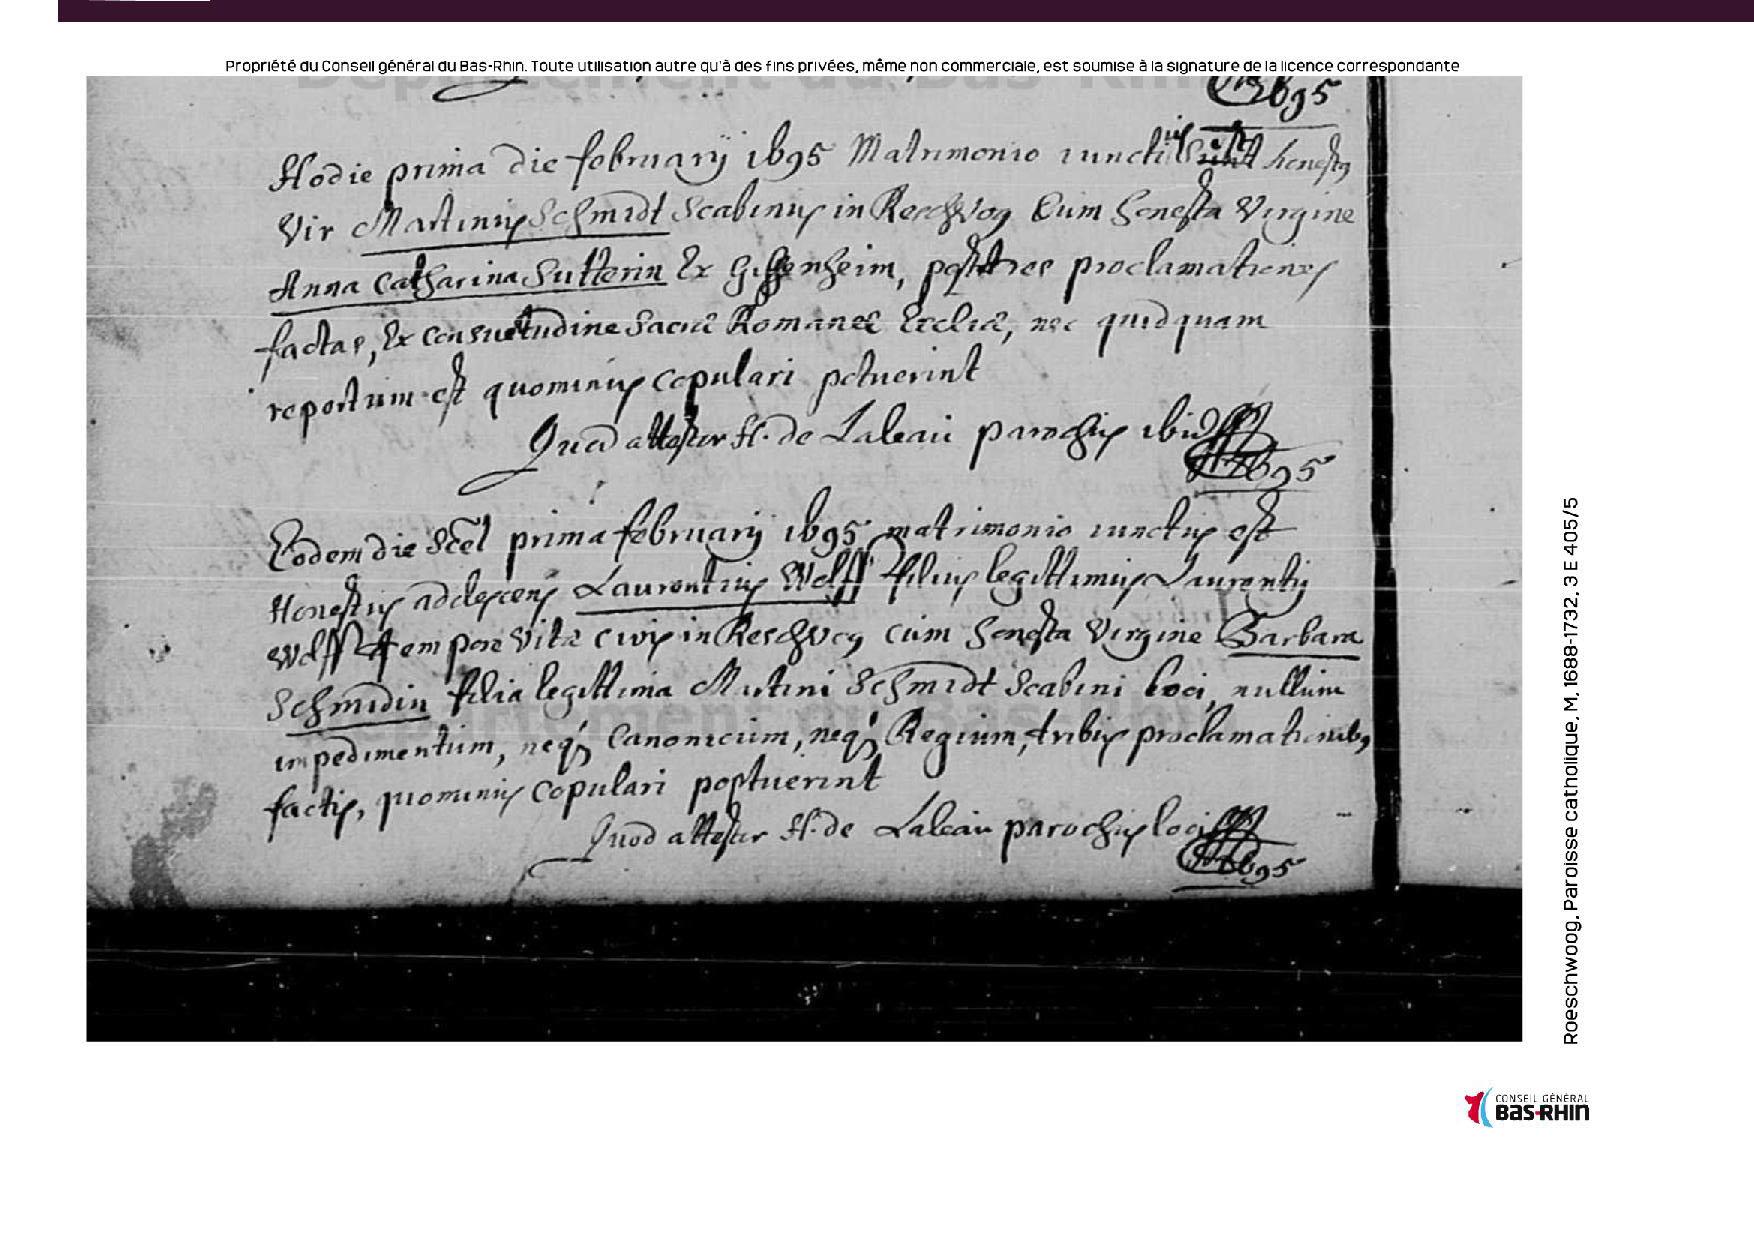 Propriété du Conseil général du Bas-Rhin. Toute utilisation autre qu'à des fins privées, même non commerciale, est soumise à la signature de la licence correspondante
Département du Bas-Rhin
1695
Hodie prima die february 1695 Matrimonio iuncti honestus
Vir Martinus Schmidt Scabinus in Reschvog Cum honesta Virgine
Anna Catharina Sutterin Ex post tres proclamationes
factas, Ex consuetudine Sacræ Romanæ Eccliæ, nec quidquam
reportum est quominus copulari potuerint
Quod attestor H. de Laleau parochus ibid
1695
Eodem die Scel prima february 1695 matrimonio iunctus est
Honestus adolescens Laurentius Wolff filius legittimus Laurentij
Wolff tempore vitæ civis in Reschvog cum honesta Virgine Barbara
Schmidin filia legittima Martini Schmidt Scabini loci, nullum
impedimentum, neq; Canonicum, neq; Regium, tribus proclamationibus
factis, quominus copulari postuerint
Département du Bas-Rhin
Quod attestor H. de Laleau parochus loci
1695
Roeschwoog, Paroisse catholique, M, 1688-1732, 3 E 405/5
CONSEIL GÉNÉRAL
BAS-RHIN